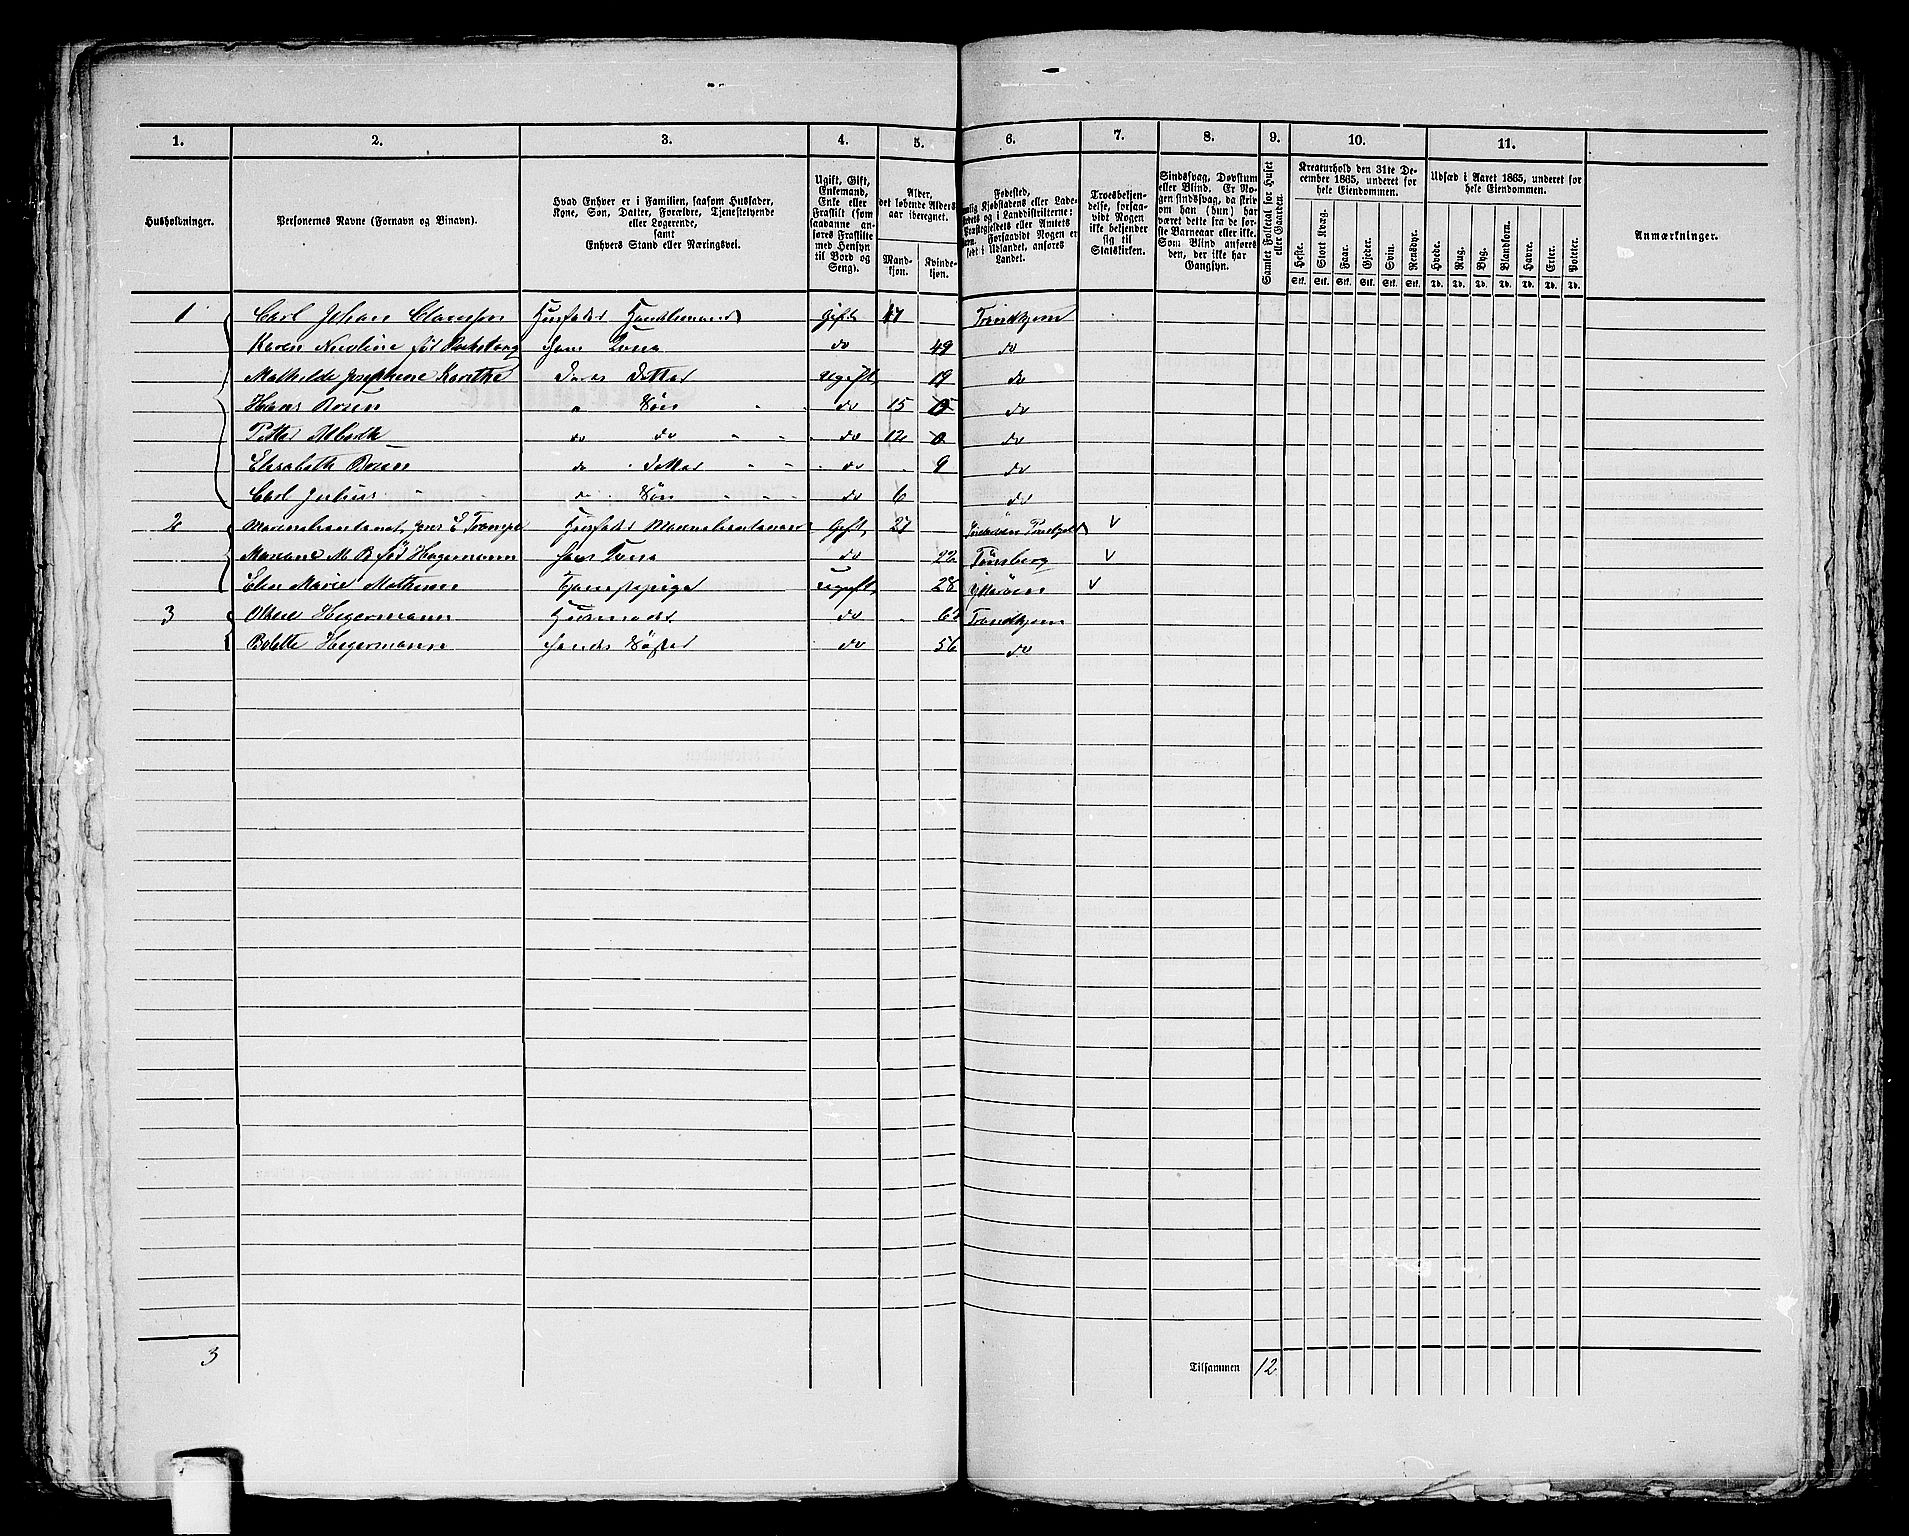 1. 2. 3. 4. 5. 6. 7. 8. 9. 10. 11.
Husholdninger.
Personernes Navne (Fornavn og Binavn).
Hvad Enhver er i Familien, saasom Husfader,
Kone, Søn, Datter, Forældre, Tjenestetyende
eller Logerende,
samt
Enhvers Stand eller Næringsvei.
Ugift, Gift,
Enkemand,
Enke eller
Fraskilt (som
saadanne an-
føres Fraskilte
med Hensyn
til Bord og
Seng).
Alder,
det løbende Alders-
aar iberegnet.
Mand-
kjøn.
Kvinde-
kjøn.
Fødested,
Forsaavidt Nogen er
født i Udlandet, anføres
Landet.
Troesbekjen-
delse, forsaa-
vidt Nogen
ikke bekjender
sig til
Statskirken.
Sindssvag, Døvstum
eller Blind. Er No-
gen sindssvag, da skriv
om han (hun) har
været dette fra de før-
ste Barneaar eller ikke.
Som Blind anføres
den, der ikke har
Gangsyn.
Samlet Folketal for Huset
eller Gaarden.
Kreaturhold den 31te De-
cember 1865, underet for
hele Eiendommen.
Heste. Stort Kvæg. Faar. Gjeder. Sviin. Rensdyr.
Stk. Stk. Stk. Stk. Stk. Stk.
Udsæd i Aaret 1865, underet for
hele Eiendommen.
Hvede. Rug. Byg. Blandkorn. Havre. Erter. Poteter.
Td. Td. Td. Td. Td. Td. Td.
Anmærkninger.
1 Carl Johan Husfader Handlemand Gift 47 Trondhjem
Karen Nicoline fød hans Kone do 49 do
Mathilde Josephine Deres Datter Ugift 19 do
Hans Rosen " Søn " " do 15 do
Petter do do " " do 12 do
Elisabeth Rosen do Datter " " do 9 do
Carl Julius " " do Søn " " " do 6 do
2 Jens E Trampe Husfader Gift 27 V
Mariane M B fød Hegermann hans Kone do 22 Tønsberg V
Marie Mathisen Tjenestepige Ugift 28 V
3 Hegermann Husmoder do 62 Trondhjem
Bolette Hegermann hendes Søster do 56 do
3 Tilsammen 12